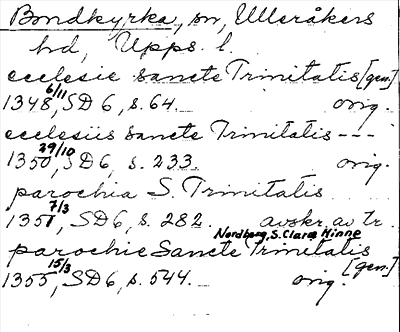 Bondkyrka, sn, Ulleråkers
hd, Upps. l.
ecclesie sancte Trinitatis [gen.]
1348 6/11, SD 6, s. 64. orig.
ecclesiis sancte Trinitatis ---
1350 29/10, SD 6, s. 233. orig.
parochia S. Trinitatis
1351 7/3, SD 6, s. 282. avskr. av tr.
Nordberg, S. Claræ Minne
parochie Sancte Trinitatis
[gen.]
1355 15/3, SD 6, s. 544. orig.